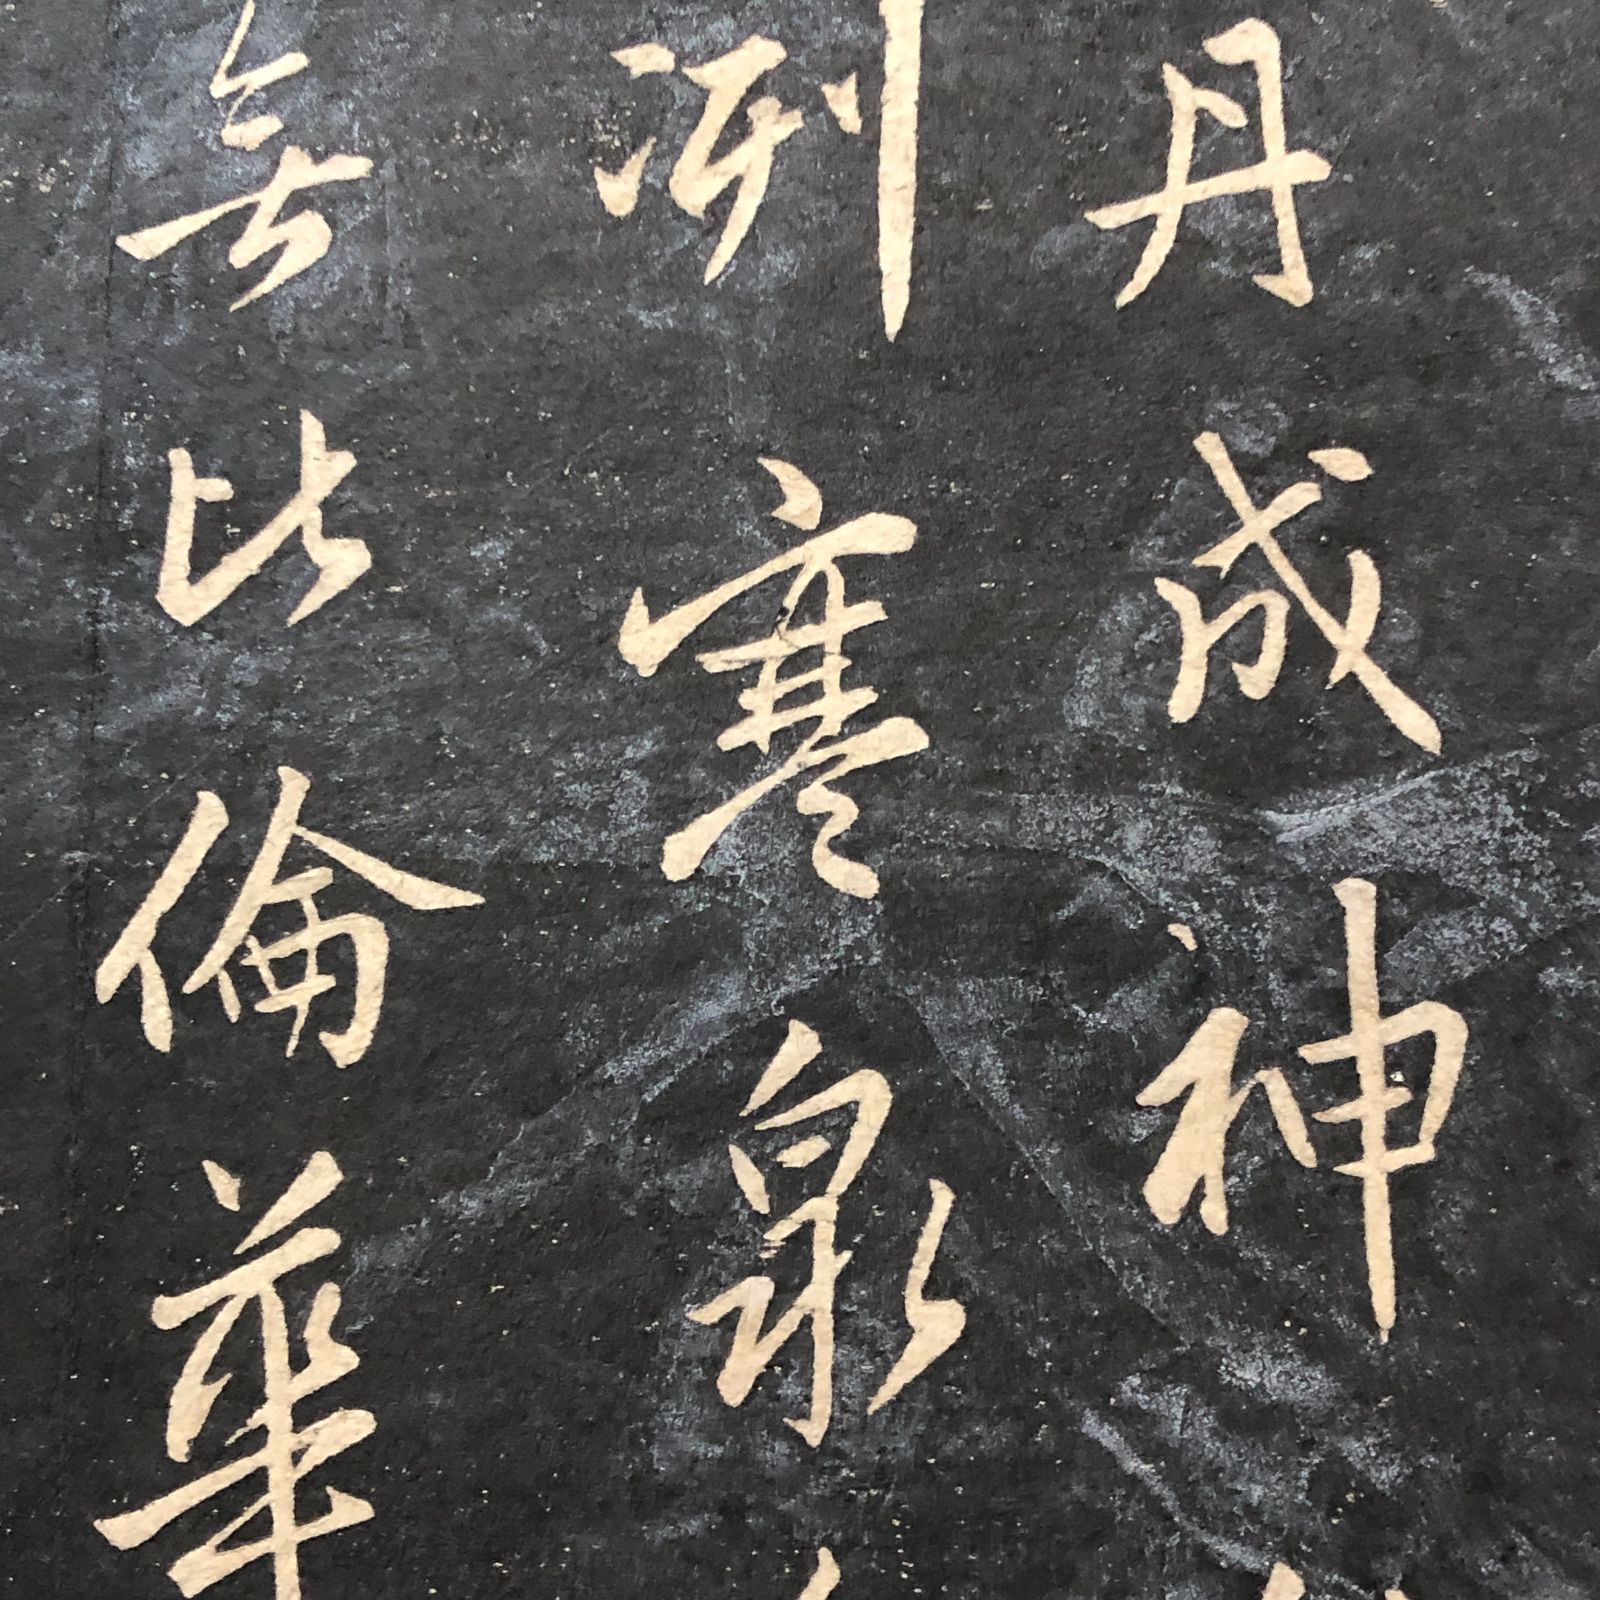 丹成神
冽寒泉
無比倫華